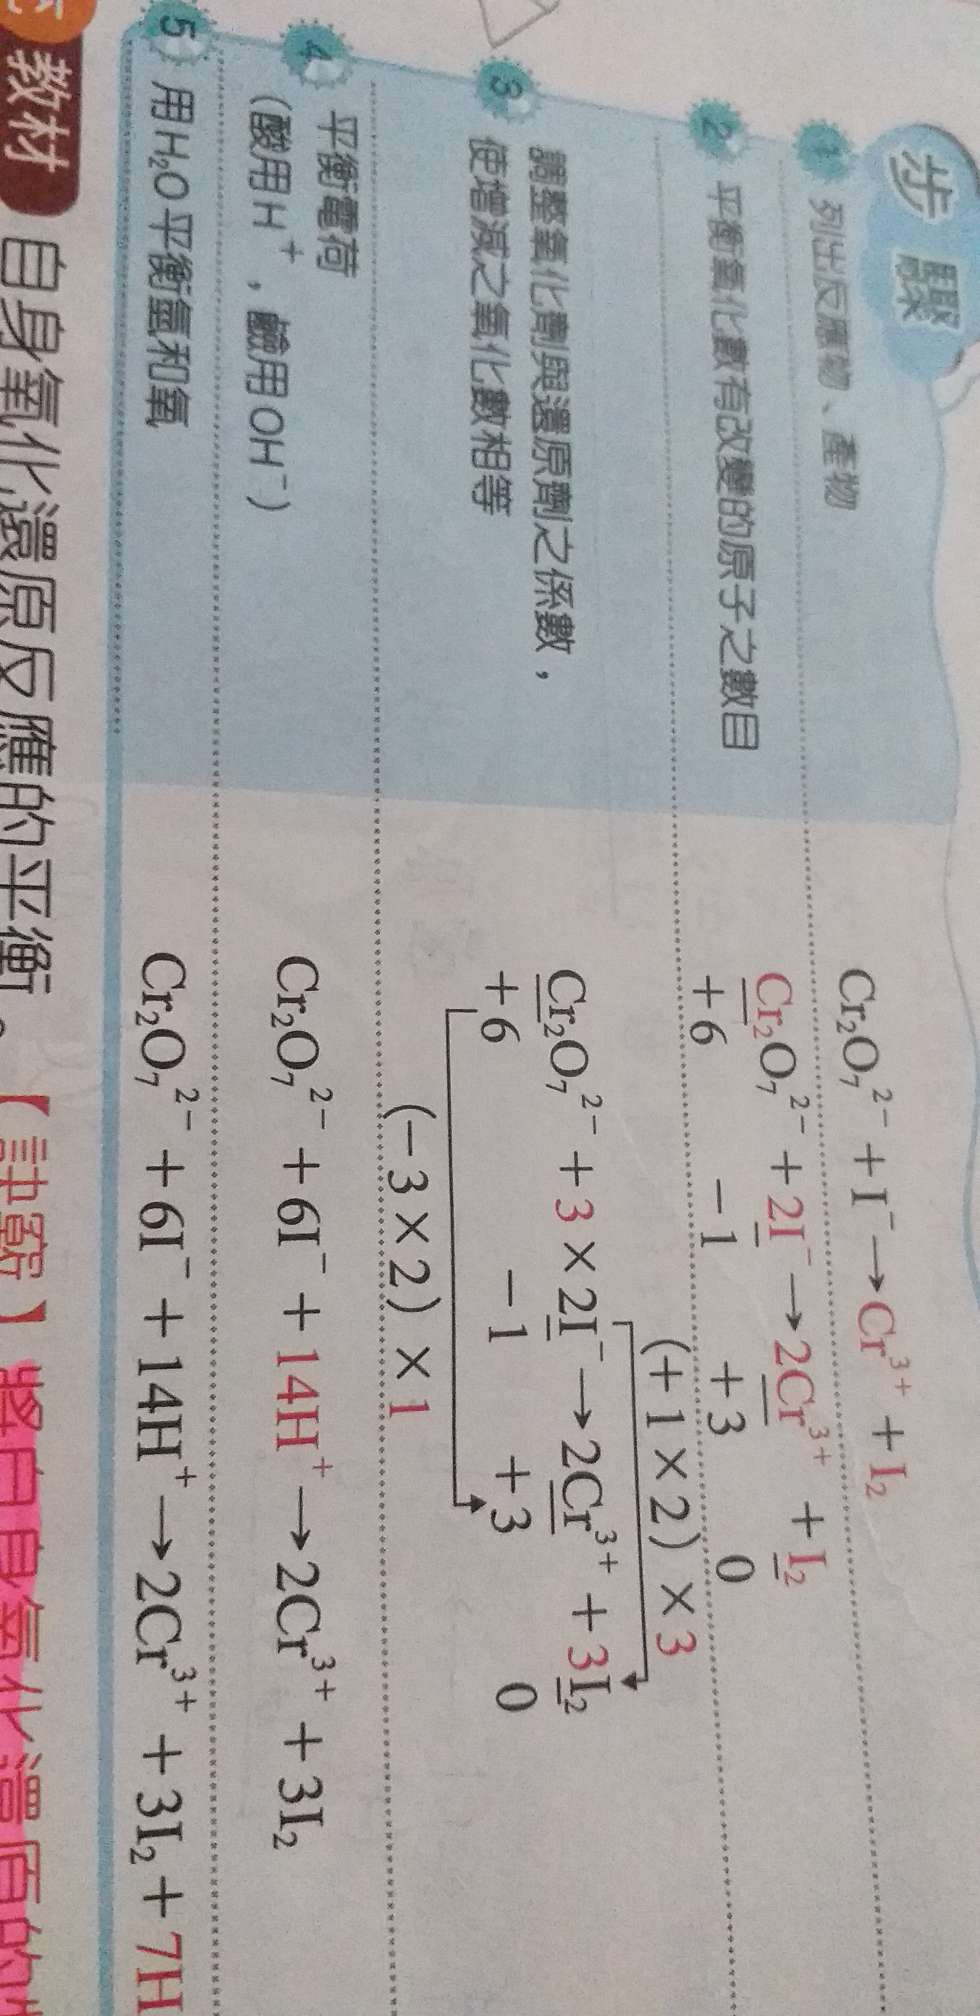 步驟
1 列出反應物、產物
Cr₂O₇²⁻ + I⁻ → Cr³⁺ + I₂
2 平衡氧化數有改變的原子之數目
Cr₂O₇²⁻ + 2I⁻ → 2Cr³⁺ + I₂
+6 −1 +3 0
3 調整氧化劑與還原劑之係數，
使增減之氧化數相等
(+1×2)×3
Cr₂O₇²⁻ + 3×2I⁻ → 2Cr³⁺ + 3I₂
+6 −1 +3 0
(−3×2)×1
4 平衡電荷
(酸用H⁺，鹼用OH⁻)
Cr₂O₇²⁻ + 6I⁻ + 14H⁺ → 2Cr³⁺ + 3I₂
5 用H₂O平衡氫和氧
Cr₂O₇²⁻ + 6I⁻ + 14H⁺ → 2Cr³⁺ + 3I₂ + 7H
教材 自身氧化還原反應的平衡。【訣竅】將自身氧化還原的